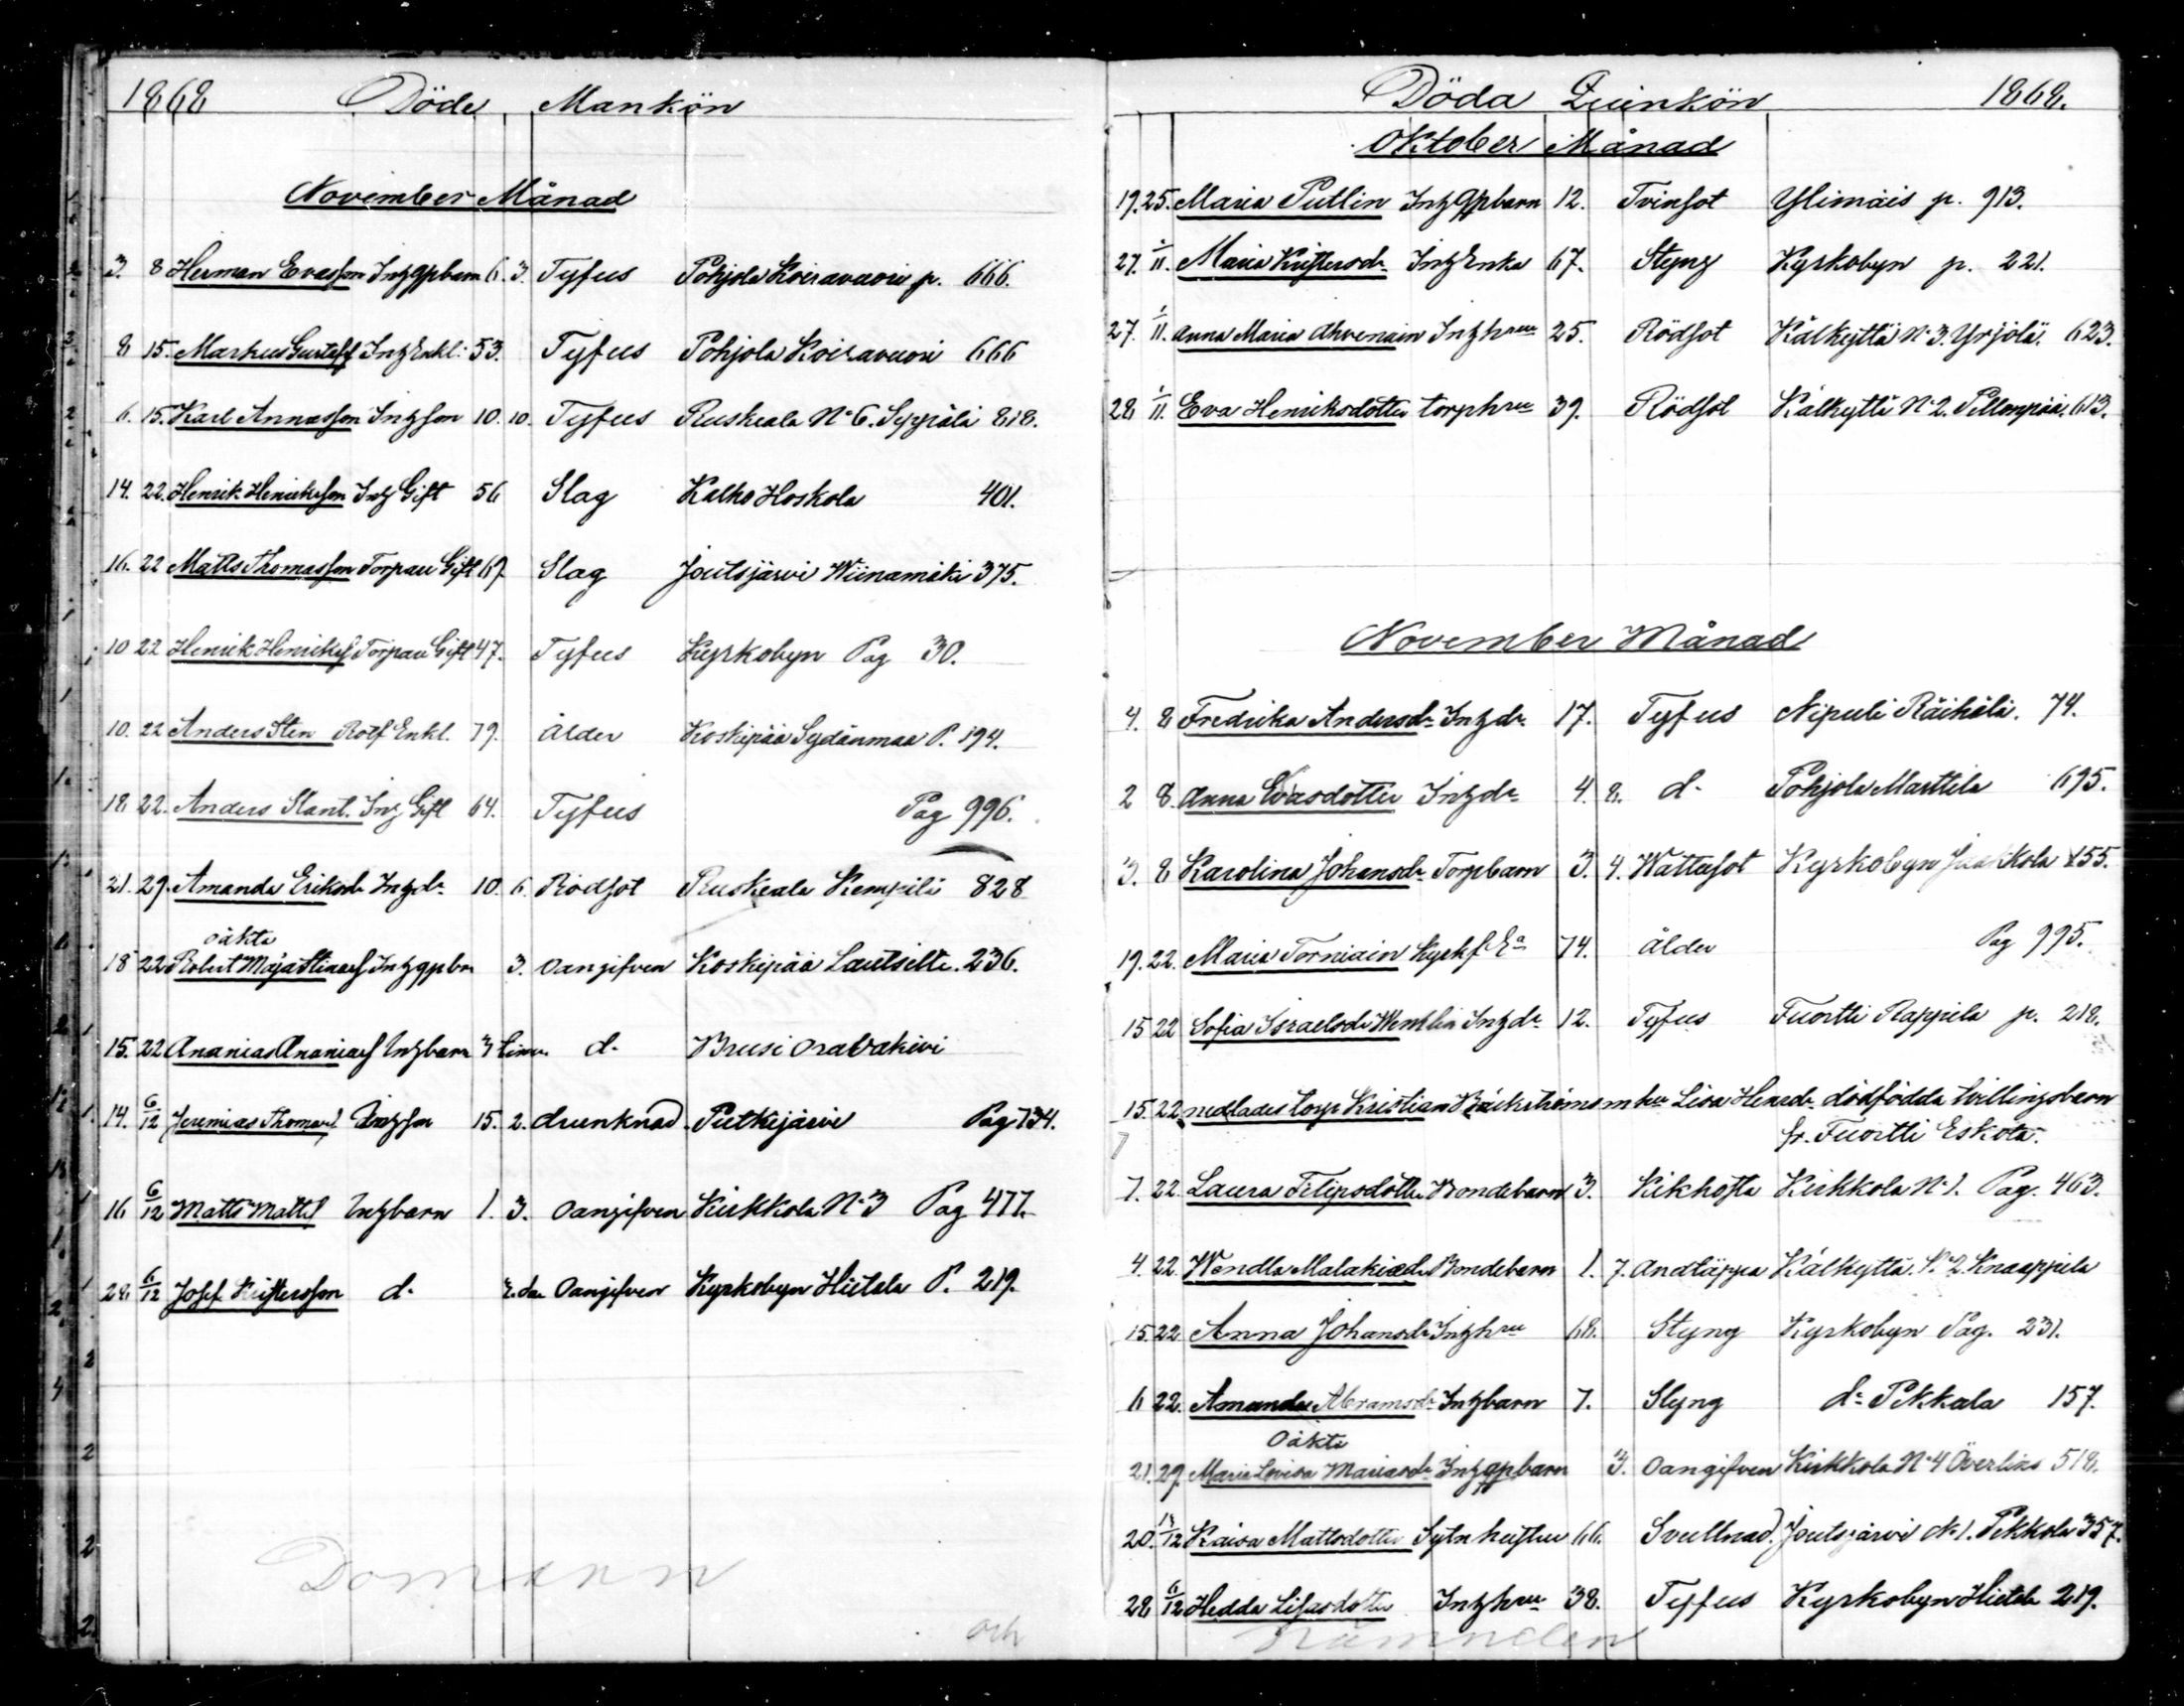 1868 Döde Mankön
November Månad
3. 8 Herman Evasson Inhgpbarn 6. 3. Tyfus Pohjola Koiravuori p. 666.
8 15. Markus Gustafs Inh Enkl: 53. Tyfus Pohjola Koiravuori 666
6. 15. Karl Annasson Inhson 10. 10. Tyfus Ruskeala No 6. Seppälä 818.
14. 22. Henrik Henriksson Inh Gift 56 Slag Kalho Hoskola 401.
16. 22 Matts Thomasson Torpau Gift 67. Slag Joutsjärvi Wiinamäki 375.
10 22 Henrik Henriks Torpau Gift 47. Tyfus Kyrkobyn Pag 30.
10. 22 Anders Sten Rotf Enkl. 79. Ålder Koskipää Sydänmaa P. 194.
18. 22. Anders Slant. Inh Gift 64. Tyfus Pag 996.
21. 29. Amanda Eriksdr Inhdr 10. 6. Rödsot Ruskeala Kempili 828
oäkta
18 22 Robert Maja Stinas Inhgpbn 3. Oangifven Koskipää Lautsilta. 236.
15. 22 Ananias Ananias Inhbarn 3 tim. d- Brusi Oravakivi
14. 6/12 Jeremias Thomas Inhson 15. 2. drunknad Putkijärvi Pag 734.
16 6/12 Matts Matts Inhbarn 1. 3. Oangifven Kirkkola No 3 Pag 477.
28. 6/12 Josef Kristersson d. 2. da Oangifven Kyrkobyn Hietala P. 219.
Domaren
och
Döda Quinkön 1868.
Oktober Månad
19. 25. Maria Putlin Inhgpbarn 12. Tvinsot Ylimäis p. 913.
27. 1/11. Maria Kristersdr Inh Enka 67. Styng Kyrkobyn p. 221.
27. 1/11. Anna Maria Ahvenain Inhhru 25. Rödsot Kälkyttä No 3. Yrjölä. 623.
28 1/11. Eva Henriksdotter torphru 39. Rödsot Kälkyttä No 2. Pellonpää. 613.
November Månad
4. 8 Fredrika Andersdr Inhdr 17. Tyfus Nipuli Räihälä. 74.
2 8. Anna Evasdotter Inhdr 4. 8. d- Pohjola Marttila 695.
3. 8 Karolina Johansdr Torpbarn 3. 4. Wattusot Kyrkobyn Jaakkola 155.
19. 22. Maria Torniain Kyrkf Ea 74. Ålder Pag 995.
15 22 Sofia Israelsdr Wenhlin Inhdr 12. Tyfus Tuortti Rappila p. 218.
15. 22 nedlades torp Kristian Bäckströms m hu Lisa Henrdr dödfödda tvillingsbarn
fr. Tuortti Eskola.
7. 22. Laura Filipsdotter Bondebarn 3. Kikhosta Kirkkola No 1. Pag. 463.
4. 22. Wendla Malakiasdr Bondebarn 1. 7. Andtäppa Kälkyttä. No 2. Knaappila
15. 22 Anna Johansdr Inhhru 68. Styng Kyrkobyn Pag. 231.
6 22. Amanda Abramsdr Inhbarn 7. Styng do Pekkala 157.
Oäkta
21. 29. Maria Lovisa Mariasdr Inhgpbarn 3. Oangifven Kirkkola No 4 Överlins 518.
20. 13/12 Kaisa Mattsdotter Sytn hustru 66. Svullnad. Joutsjärvi No 1. Pekkola 357.
28 6/12 Hedda Lisasdotter Inhhru 38. Tyfus Kyrkobyn Hietala 219.
Nämnden